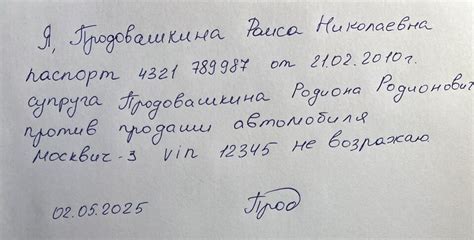 Я, Продовашкина Раиса Николаевна
паспорт 4321 789987 от 21.02.2010г.
супруга Продовашкина Родиона Родионович
против продаши автомобиля
москвич-3 vin 12345 не возражаю
02.05.2025 Прод